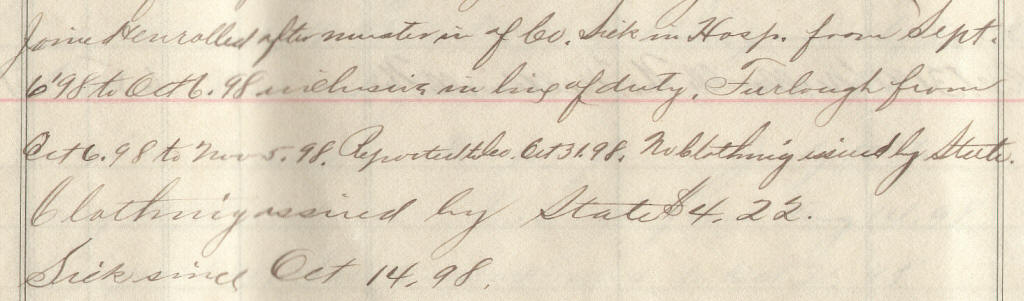 Joined & enrolled after muster in of Co. Sick in Hosp. from Sept.
6'98 to Oct 6. 98 inclusive in line of duty. Furlough from
Oct 6. 98 to Nov 5. 98. Reported to Co. Oct 31. 98. No Clothing issued by State.
Clothing issued by State $4.22.
Sick since Oct 14, 98.